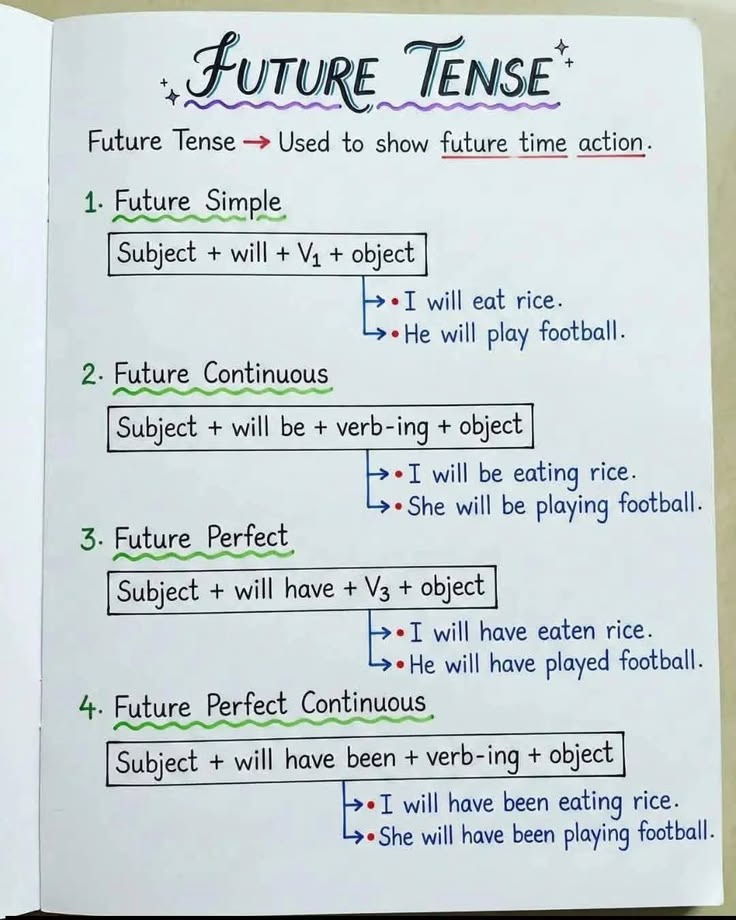 FUTURE TENSE
Future Tense → Used to show future time action.
1. Future Simple
Subject + will + V₁ + object
→ • I will eat rice.
→ • He will play football.
2. Future Continuous
Subject + will be + verb-ing + object
→ • I will be eating rice.
→ • She will be playing football.
3. Future Perfect
Subject + will have + V₃ + object
→ • I will have eaten rice.
→ • He will have played football.
4. Future Perfect Continuous
Subject + will have been + verb-ing + object
→ • I will have been eating rice.
→ • She will have been playing football.